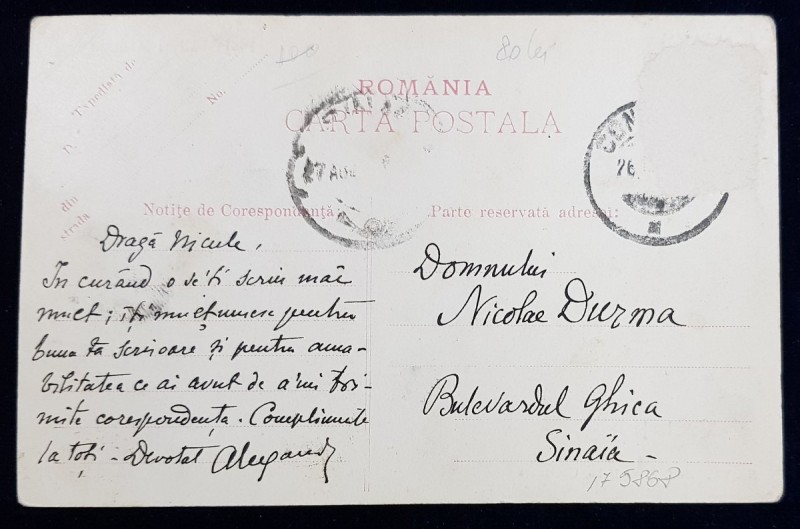 80 lei
Expediată de
No.
ROMÂNIA
CARTA POSTALA
27 AUG
26
din
strada
Notițe de Corespondență
Parte reservată adresei:
Dragă Nicule,
In curând o să'ți scriu mai
mult; îți mulțumesc pentru
buna ta scrisoare și pentru ama-
bilitatea ce ai avut de a'mi tri-
mite corespondența. Complimente
la toți - Devotat
Domnului
Nicolae Durma
Bulevardul Ghica
Sinaïa
175868